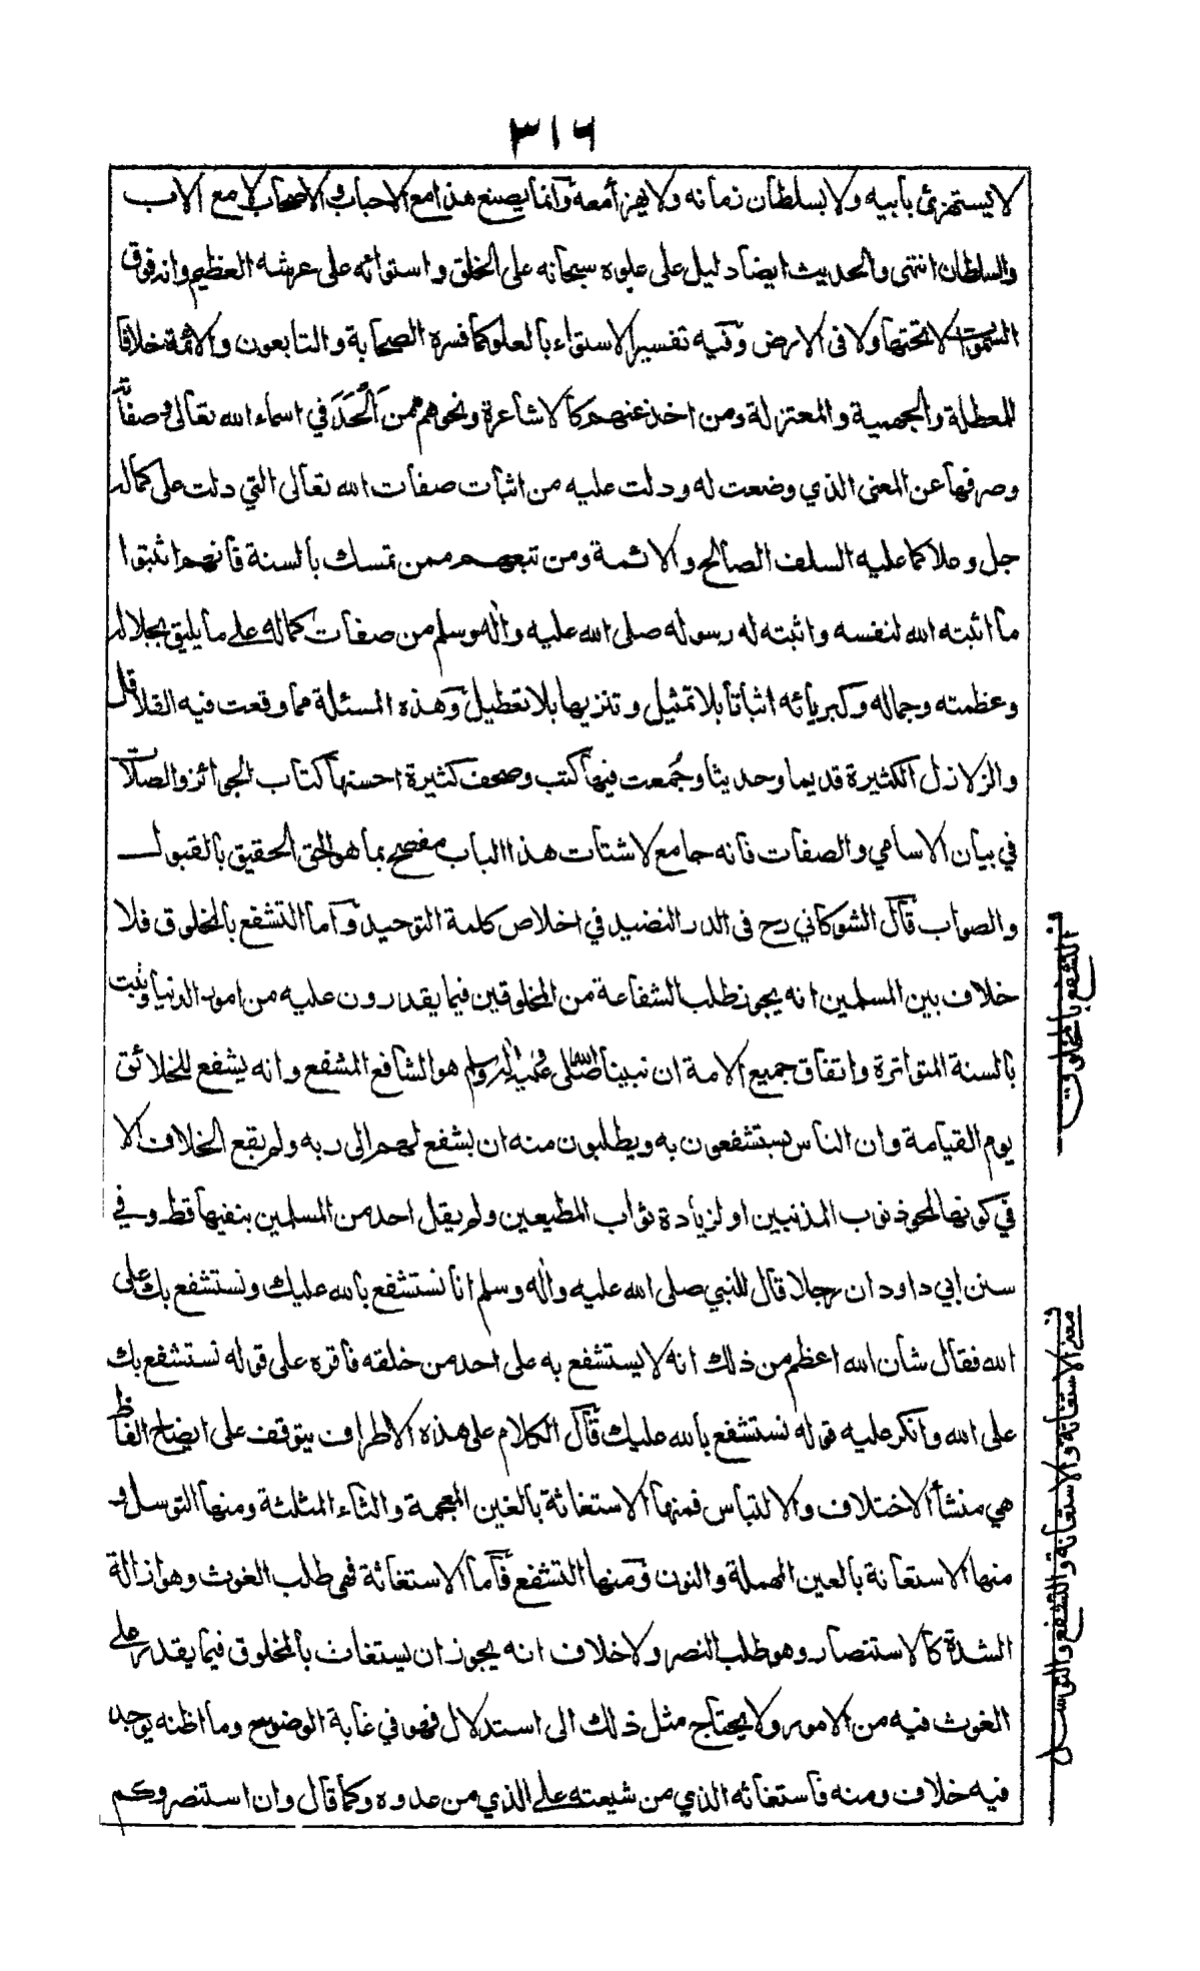 ٣١٦
لا يستهزئ بأبيه ولا بسلطان زمانه ولا يهزأ معه وانما يصنع هذا مع الاحباب والاصحاب لا مع الاب
والسلطان انتهى والحديث ايضا دليل على علوه سبحانه على الخلق واستوائه على عرشه العظيم وانه فوق
السموات لا تحتها ولا فى الارض وفيه تفسير الاستواء بالعلو كما فسره الصحابة والتابعون والائمة خلافا
للمعطلة والجهمية والمعتزلة ومن اخذ عنهم كالاشاعرة ونحوهم ممن اَلْحَدَ في اسماء الله تعالى وصفاته
وصرفها عن المعنى الذي وضعت له ودلت عليه من اثبات صفات الله تعالى التي دلت على كماله
جل وعلا كما عليه السلف الصالح والائمة ومن تبعهم ممن تمسك بالسنة فانهم اثبتوا
ما اثبته الله لنفسه واثبته له رسوله صلى الله عليه وآله وسلم من صفات كماله على ما يليق بجلاله
وعظمته وجماله وكبريائه اثباتا بلا تمثيل وتنزيها بلا تعطيل وهذه المسئلة مما وقعت فيه القلاقل
والزلازل الكثيرة قديما وحديثا وجُمعت فيها كتب وصحف كثيرة احسنها كتاب الجوائز والصلات
في بيان الاسامي والصفات فانه جامع لاشتات هذا الباب مفصح بما هو الحق الحقيق بالقبول
والصواب قال الشوكاني رح فى الدر النضيد في اخلاص كلمة التوحيد واما التشفع بالمخلوق فلا
خلاف بين المسلمين انه يجوز طلب الشفاعة من المخلوقين فيما يقدرون عليه من امور الدنيا وثبت
بالسنة المتواترة واتفاق جميع الامة ان نبينا صلى الله عليه وآله وسلم هو الشافع المشفع وانه يشفع للخلائق
يوم القيامة وان الناس يستشفعون به ويطلبون منه ان يشفع لهم الى ربه ولم يقع الخلاف الا
في كونها لمحو ذنوب المذنبين او لزيادة ثواب المطيعين ولم يقل احد من المسلمين بنفيها قط وفي
سنن ابي داود ان رجلا قال للنبي صلى الله عليه وآله وسلم انا نستشفع بالله عليك ونستشفع بك على
الله فقال شان الله اعظم من ذلك انه لا يستشفع به على احد من خلقه فاقره على قوله نستشفع بك
على الله وانكر عليه قوله نستشفع بالله عليك قال الكلام على هذه الاطراف يتوقف على ايضاح الفاظ
هي منشأ الاختلاف والالتباس فمنها الاستغاثة بالغين المعجمة والثاء المثلثة ومنها التوسل و
منها الاستعانة بالعين المهملة والنون ومنها التشفع فاما الاستغاثة فهى طلب الغوث وهو ازالة
الشدة كالاستنصار وهو طلب النصر ولا خلاف انه يجوز ان يستغاث بالمخلوق فيما يقدر على
الغوث فيه من الامور ولا يحتاج مثل ذلك الى استدلال فهو في غاية الوضوح وما اظنه يوجد
فيه خلاف ومنه فاستغاثه الذي من شيعته على الذي من عدوه وكما قال وان استنصروكم
ف التشفع بالمخلوق
ف معنى الاستغاثة والاستعانة والتشفع والتوسل